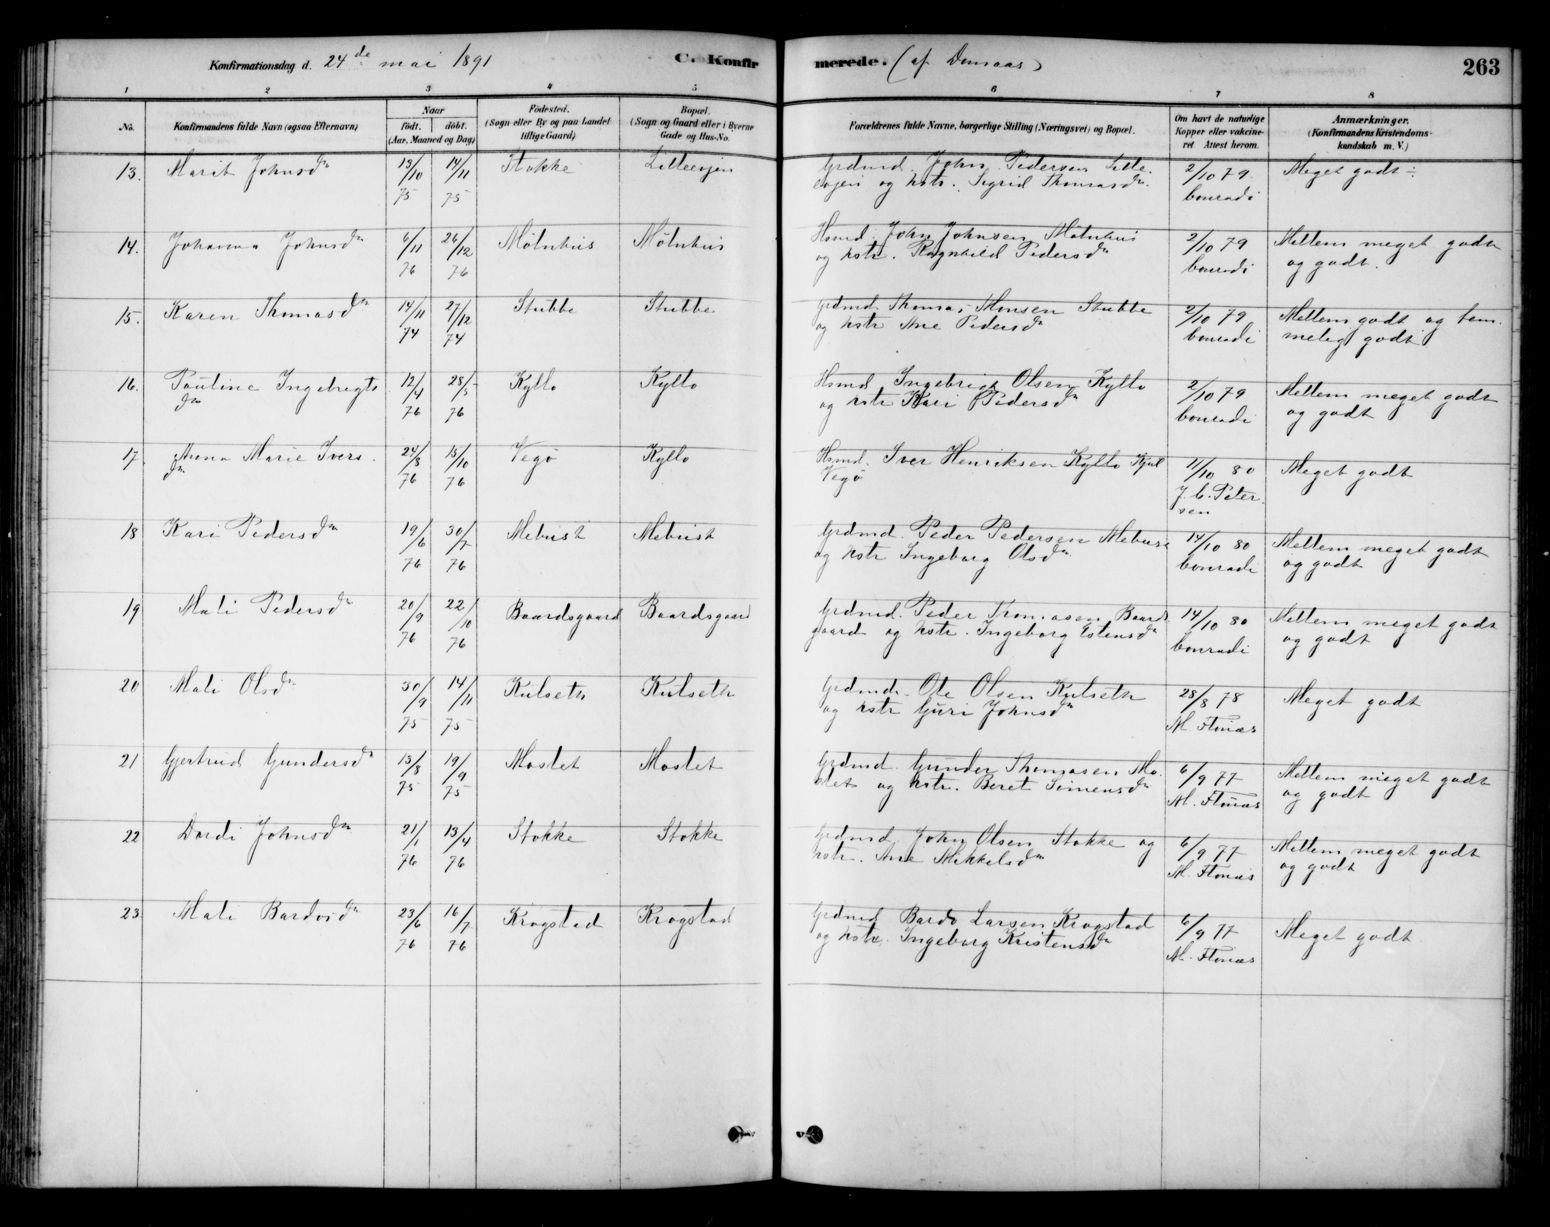 Konfirmationsdag d. 24de mai 1891 C. Konfirmerede. (af Domaas) 263
1 2 3 4 5 6 7 8
No. Konfirmandens fulde Navn (ogsaa Efternavn) Naar født. døbt. (Aar, Maaned og Dag) Fødested. (Sogn eller By og paa Landet tillige Gaard) Bopæl. (Sogn og Gaard eller i Byerne Gade og Hus-No. Forældrenes fulde Navne, borgerlige Stilling (Næringsvei) og Bopæl. Om havt de naturlige Kopper eller vaccineret Attest herom. Anmærkninger. (Konfirmandens Kristendomskundskab m. V.)
13. Marit Johnsdn 13/10 75 14/11 75 Stokke Lilleevjen Grdmd. John Pedersen Lille-
evjen og kstr. Sigrid Thomasdn. 2/10 79. Conradi Meget godt ÷
14. Johanna Johnsdn 6/11 76 26/12 76 Mølnhus Mølnhus Hsmd. John Johnsen Mølnhus
og kstr. Ragnhild Pedersdn 2/10 79 Conradi Mellem meget godt
og godt.
15. Karen Thomasdn 14/11 74 27/12 74 Stubbe Stubbe Grdmd. Thomas Monsen Stubbe
og kstr Ane Pedersdn 2/10 79 Conradi Mellem godt og tem-
melig godt
16. Pauline Ingebrigts
dn 12/4 76 28/5 76 Kyllo Kyllo Hsmd. Ingebrigt Olsen Kyllo
og kstr Kari Pedersdn 2/10 79 Conradi Mellem meget godt
og godt
17. Anna Marie Ivers
dn 24/8 76 15/10 76 Vegø Kyllo Hsmd. Iver Henriksen Kyllo
Vegø 11/10 80 J. C. Peter-
sen Meget godt
18 Kari Pedersdn 19/6 76 30/7 76 Mebust Mebust Grdmd. Peder Pedersen Mebust
og kstr Ingeborg Olsdn 14/10 80 Conradi Mellem meget godt
og godt
19 Mali Pedersdn 20/9 76 22/10 76 Baardsgaard Baardsgaard Grdmd. Peder Thomasen Baards
gaard og kstr. Ingeborg Estensdn 14/10 80 Conradi Mellem meget godt
og godt
20 Mali Olsdn 30/9 75 14/11 75 Kulseth Kulseth Grdmd. Ole Olsen Kulseth
og kstr Guri Johnsdn 28/8 78 M. Flønæs Meget godt
21 Gjertrud Gundersdn 13/8 75 19/9 75 Moslet Moslet Grdmd. Gunder Thomasen Mo-
slet og kstr. Beret Simensdn 6/9 77 M. Flønæs Mellem meget godt
og godt
22 Dordi Johnsdn 21/1 76 13/4 76 Stokke Stokke Grdmd. John Olsen Stokke og
kstr. Ane Mikkelsdn 6/9 77 M. Flønæs Mellem meget godt
og godt
23 Mali Bardosdn 23/6 76 16/7 76 Krogstad Krogstad Grdmd Bardo Larsen Krogstad
og kstr. Ingeborg Kristensdn 6/9 77 M. Flønæs Meget godt